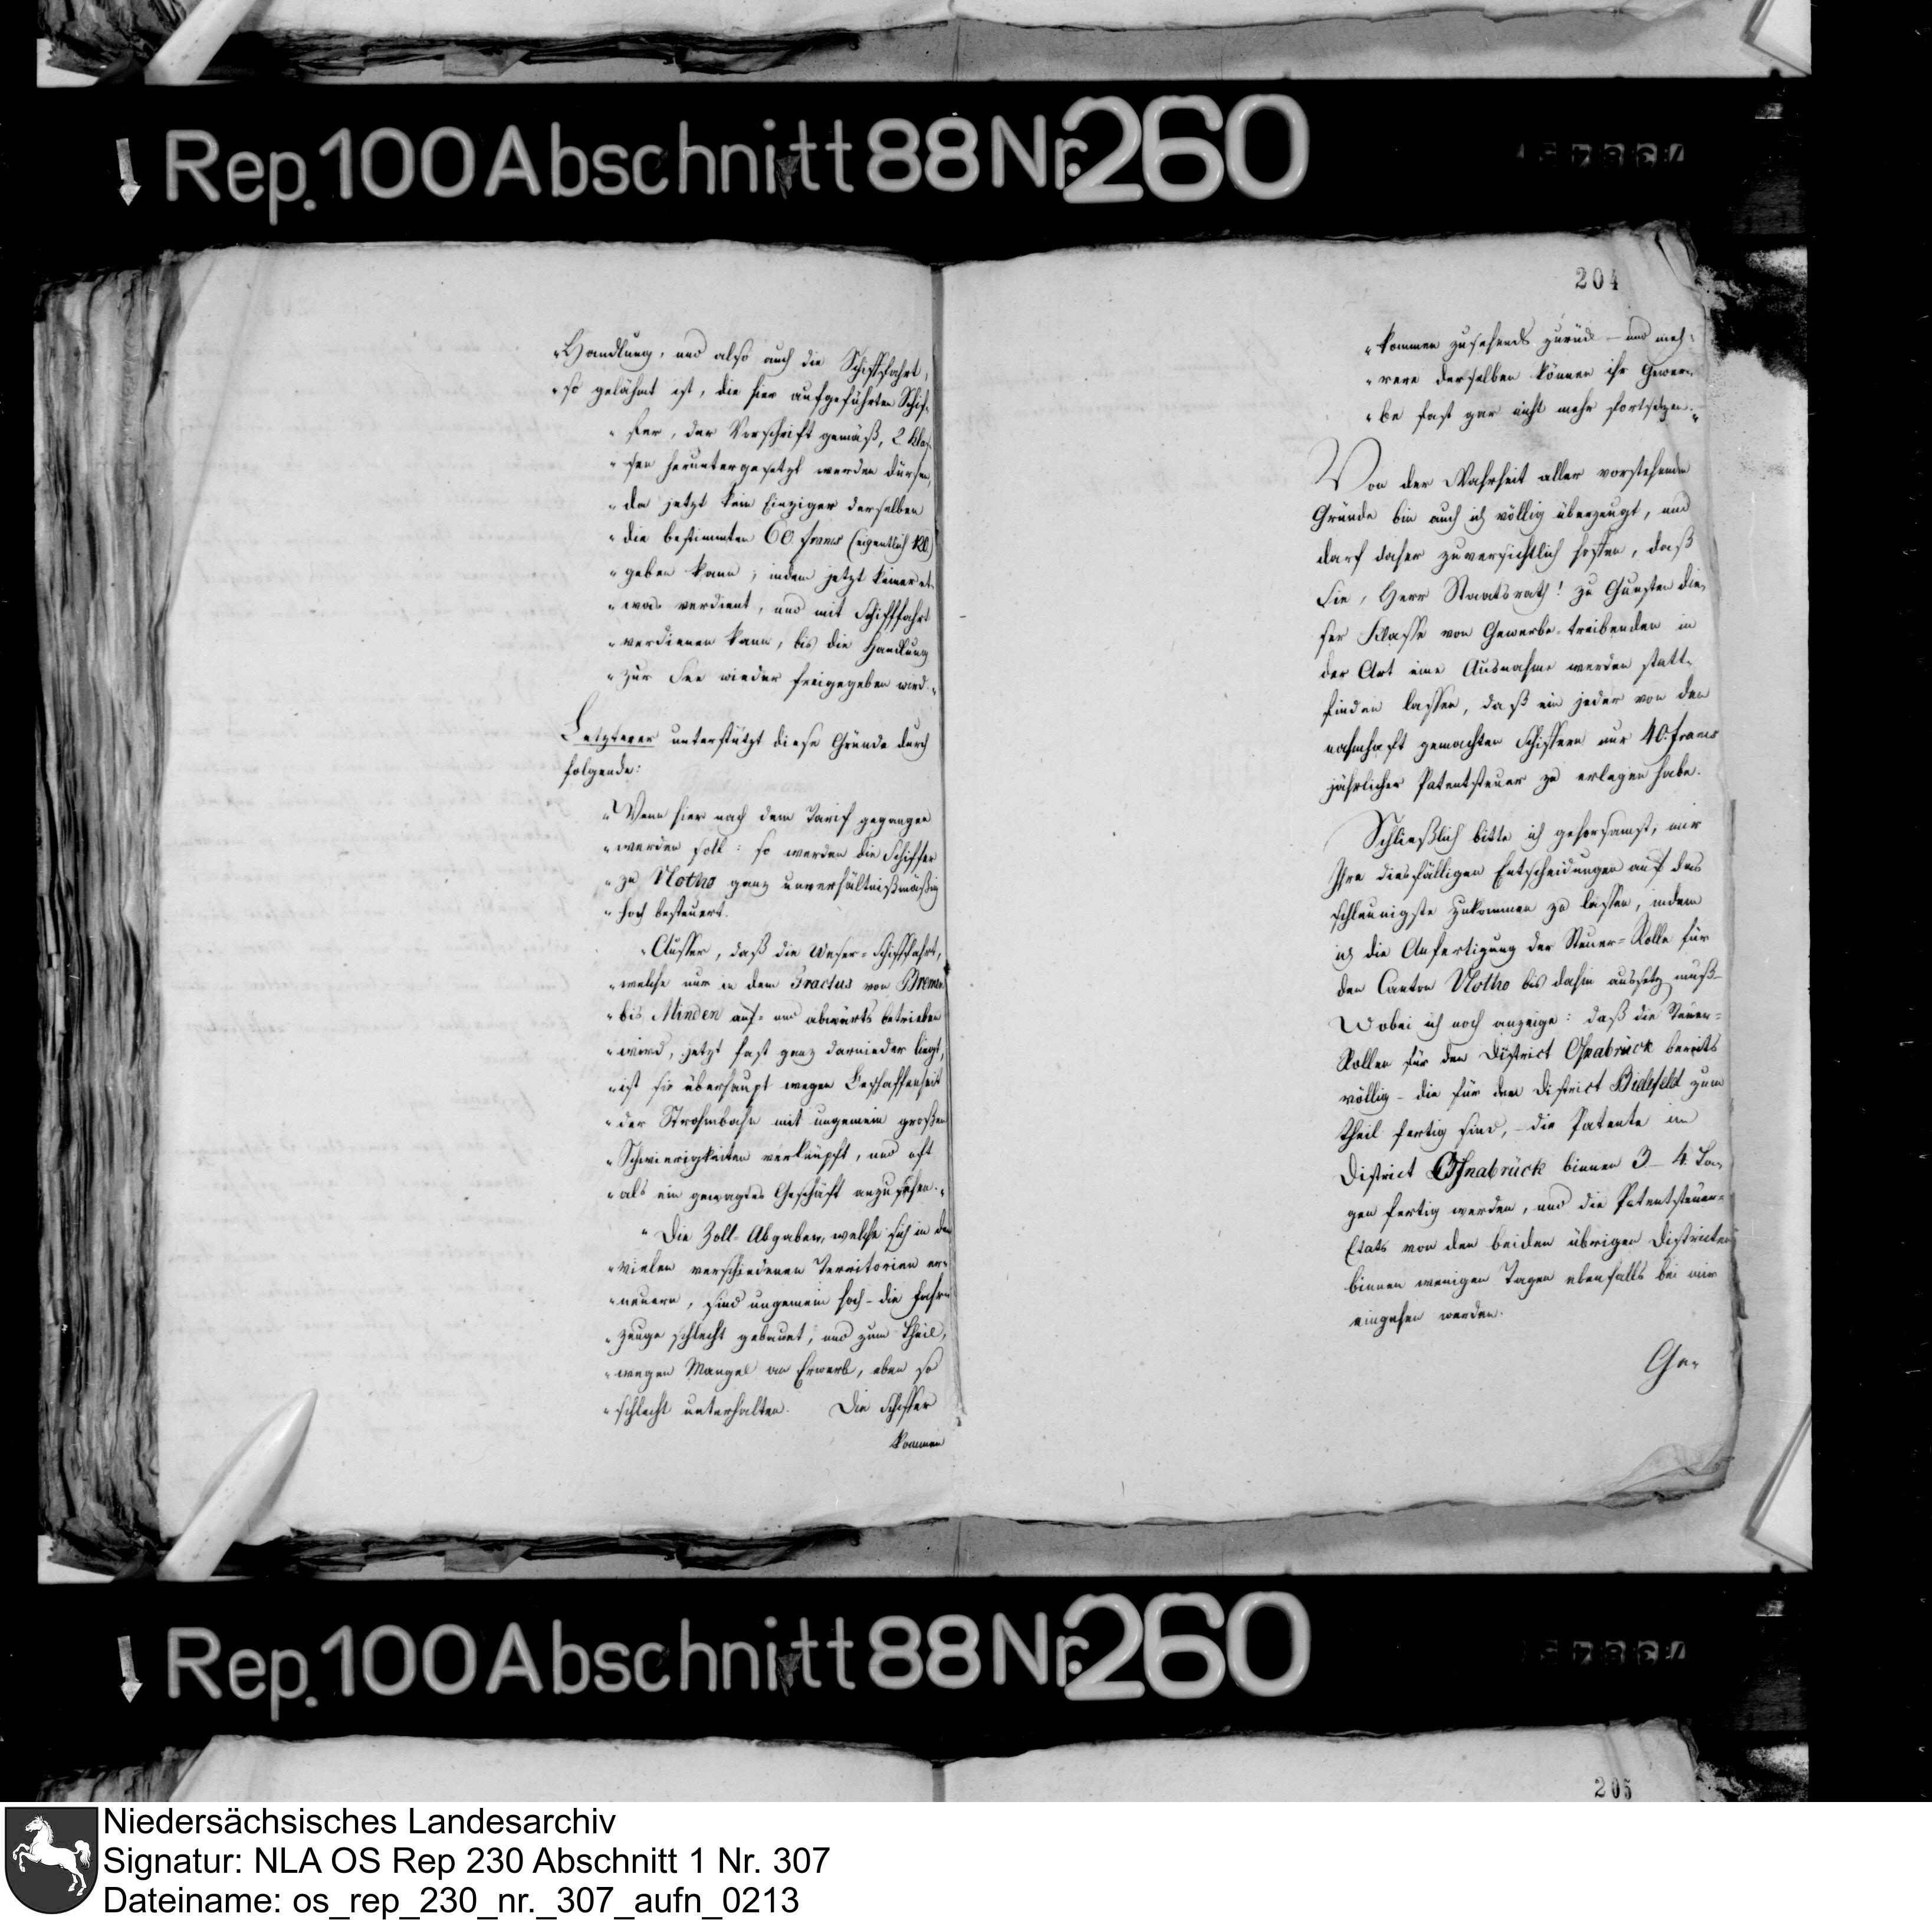 Rep. 100 Abschnitt 88 Nr. 260
"Handlung, und also auch die Schifffahrt,
"so gelähmt ist, die hier aufgeführten Schif-
"fer, der Vorschrift gemäß, 2 Klas-
"sen heruntergesetzt werden dürfen,
"da jetzt kein Einziger derselben
"die bestimmten 60 francs (eigentlich 120)
"geben kann; indem jetzt keiner et-
"was verdient, und mit Schifffahrt
"verdienen kann, bis die Handlung
"zur See wieder freigegeben wird."
Letzterer unterstützt diese Gründe durch
folgende:
"Wenn hier nach dem Tarif gegangen
"werden soll: so werden die Schiffer
"zu Vlotho ganz unverhältnißmäßig
"hoch besteuert.
"Ausser, daß die Weser-Schifffahrt,
"welche nur in dem Tractus von Bremen
"bis Minden auf- und abwärts betrieben
"wird, jetzt fast ganz darnieder liegt,
"ist sie überhaupt wegen Beschaffenheit
"der Strohmbahn mit ungemein großen
"Schwierigkeiten verknüpft, und oft
"als ein gewagtes Geschäft anzusehen."
"Die Zoll-Abgaben, welche sich in den
"vielen verschiedenen Territorien er-
"neuern, sind ungemein hoch - die Fahr-
"zeuge schlecht gebauet, und zum Theil,
"wegen Mangel an Erwerb, eben so
"schlecht unterhalten. Die Schiffer
kommen
204
"kommen zusehends zurück - und meh-
"rere derselben können ihr Gewer-
"be fast gar nicht mehr fortsetzen."
Von der Wahrheit aller vorstehenden
Gründe bin auch ich völlig überzeugt, und
darf daher zuversichtlich hoffen, daß
Sie, Herr Staatsrath! zu Gunsten die-
ser Klasse von Gewerbe-treibenden in
der Art eine Ausnahme werden statt-
finden lassen, daß ein jeder von den
nahmhaft gemachten Schiffern nur 40. francs
jährlicher Patentsteuer zu erlegen habe.
Schließlich bitte ich gehorsamst, mir
Ihre diesfälligen Entscheidungen auf das
schleunigste zukommen zu lassen, indem
ich die Anfertigung der Steuer-Rolle für
den Canton Vlotho bis dahin aussetzen muß -
Wobei ich noch anzeige: daß die Steuer-
Rollen für den District Osnabrück bereits
völlig - die für den District Bielefeld zum
theil fertig sind, - die Patente im
District Osnabrück binnen 3 - 4 Ta-
gen fertig werden, und die Patentsteuer-
Etats von den beiden übrigen Districten
binnen wenigen Tagen ebenfalls bei mir
eingehen werden.
Ge-
Rep. 100 Abschnitt 88 Nr. 260
205
Niedersächsisches Landesarchiv
Signatur: NLA OS Rep 230 Abschnitt 1 Nr. 307
Dateiname: os_rep_230_nr._307_aufn_0213